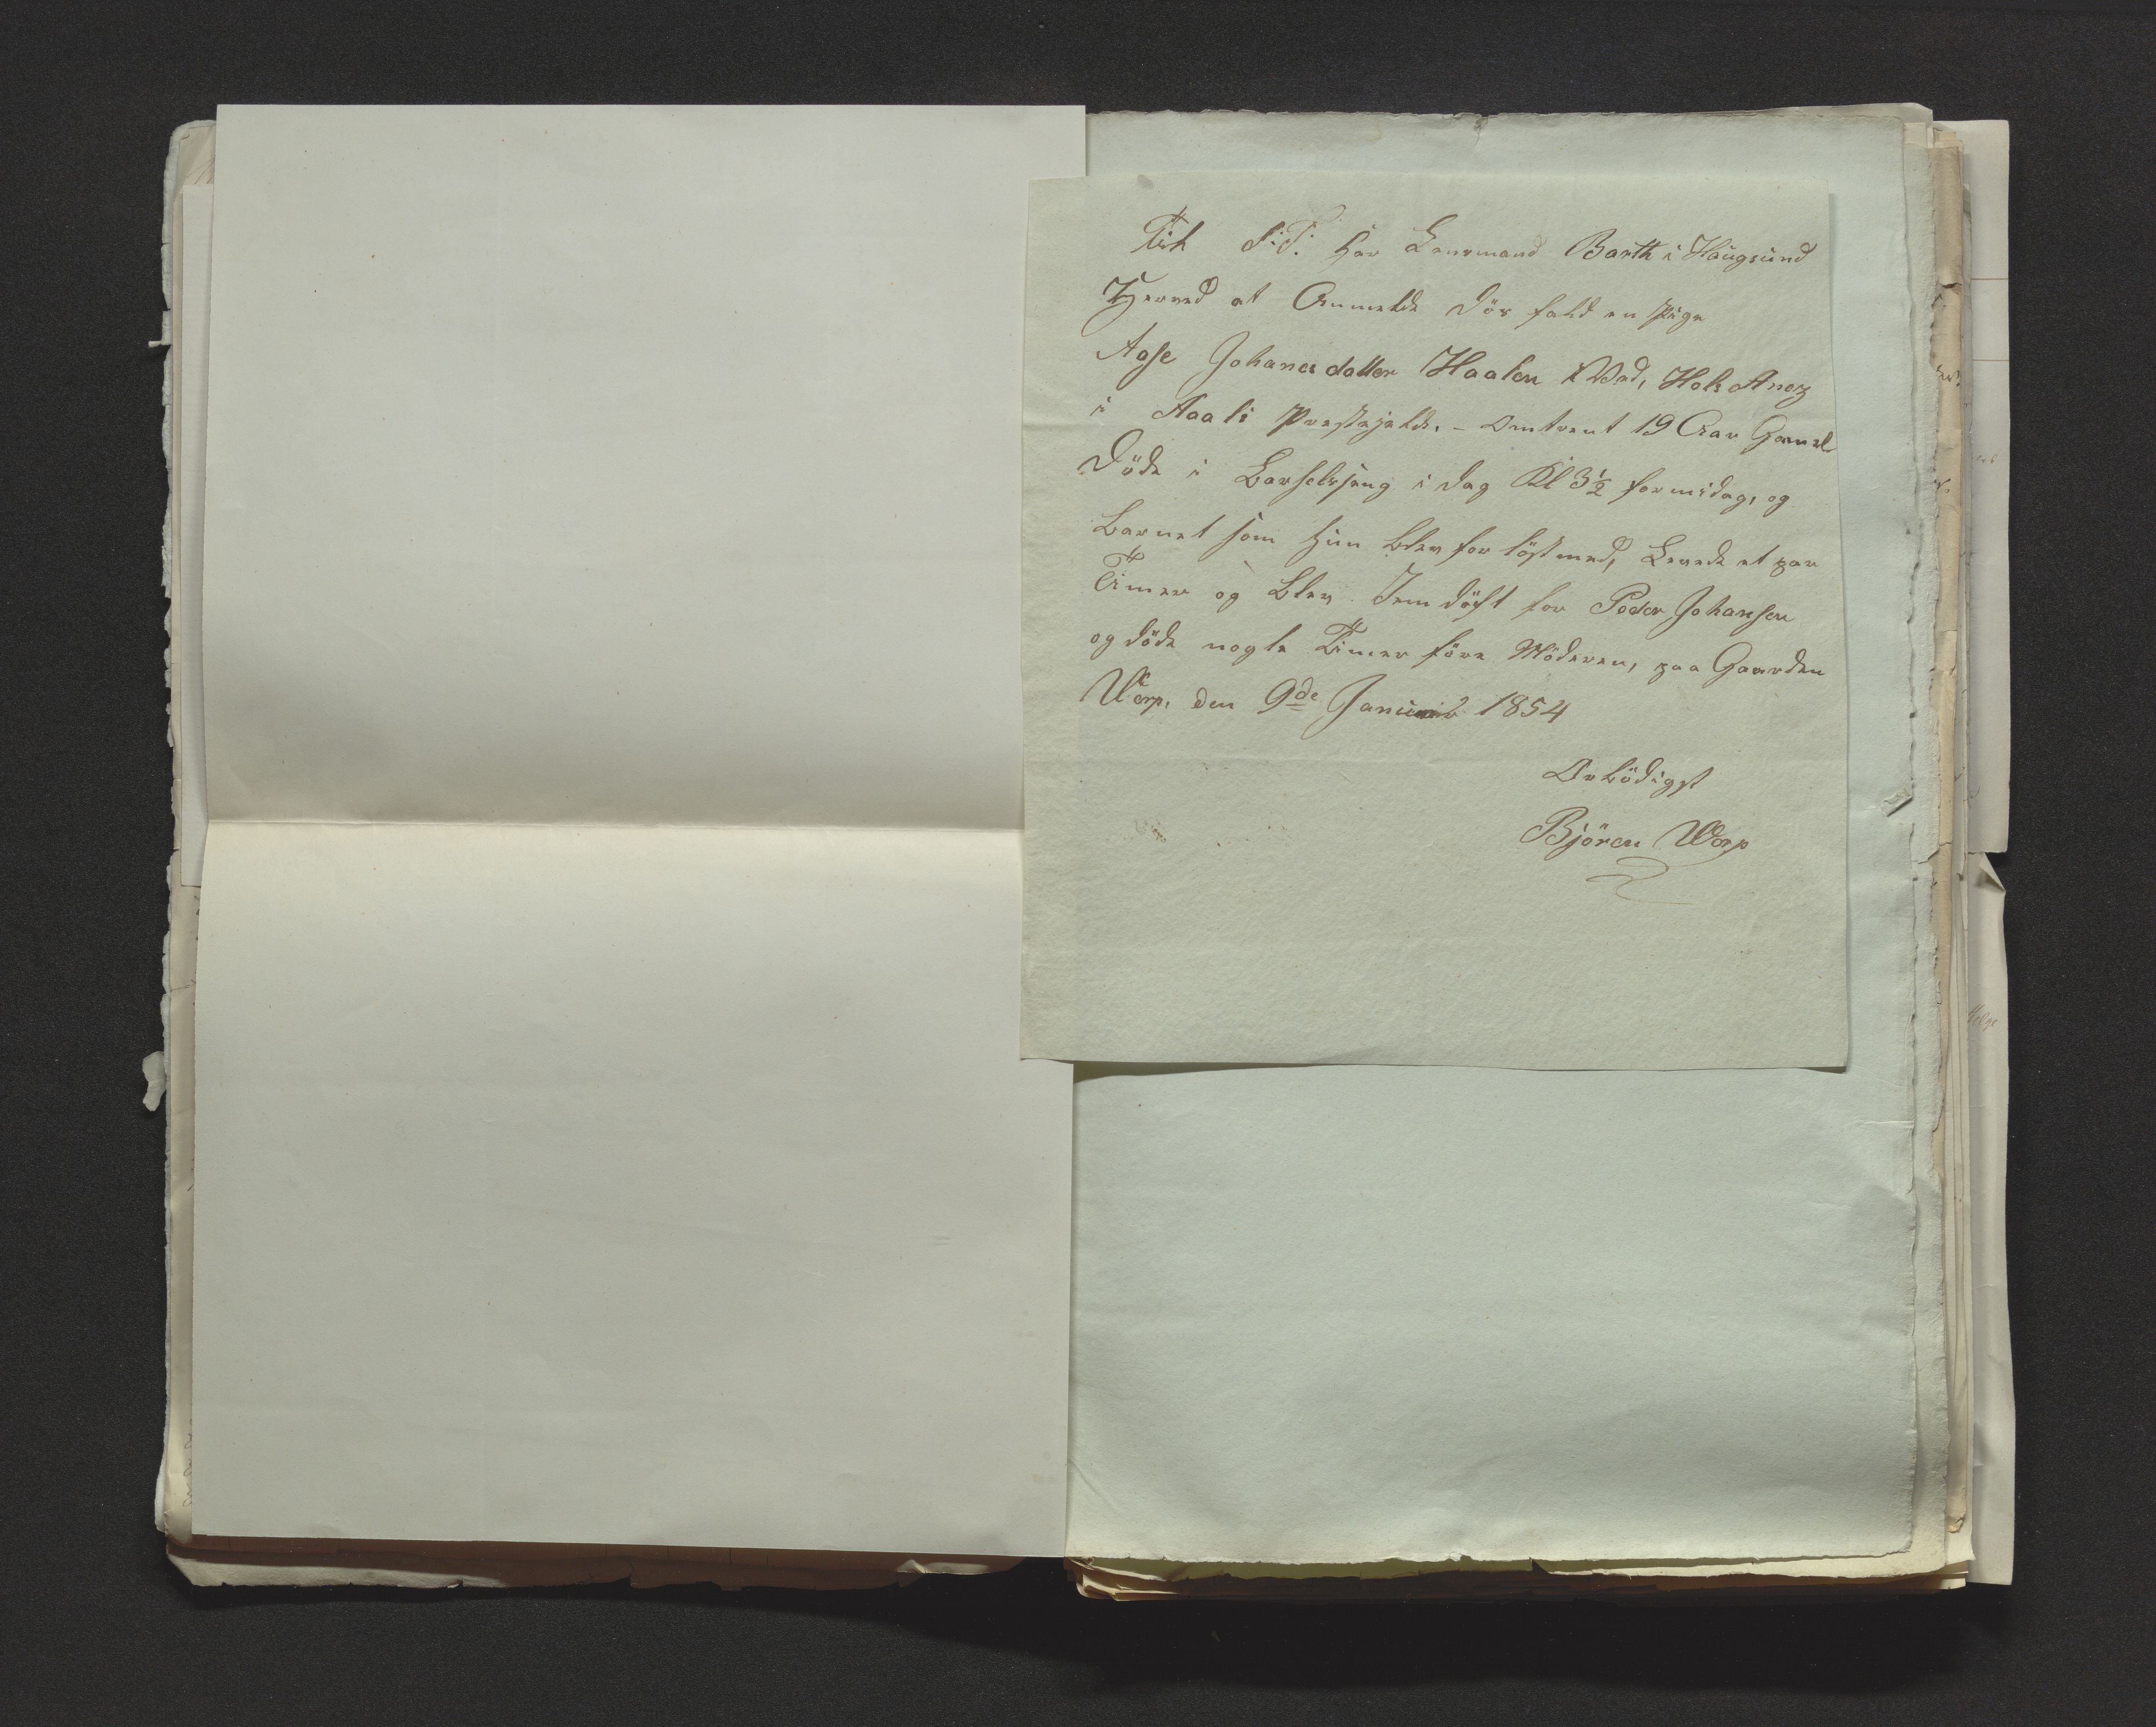 Till S: T: Her Lensmand Barth i Haugsund
Herved at Anmelde dös fald en Pige
Aase Johanesdatter Haalen i Hols Anex
i Aaals Præstejeld. - omtrent 19 Aar Gamel
Döde i Barselseng i dag Kl 3½ formidag, og
Barnet som hun blev for löst med, Levede et par
Timer og blev Jemdöft for Peder Johansen
og döde nogle Timer före Möderen, paa Gaarden
Værp, den 9de Januar 1854
Ærbödigst
Björen Værp